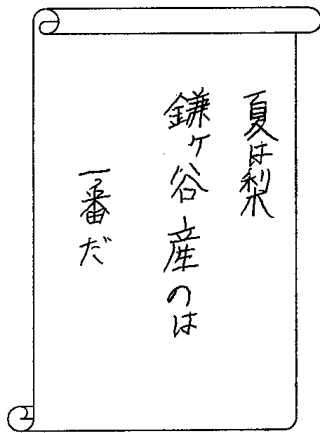 夏は梨
鎌ヶ谷産のは
一番だ